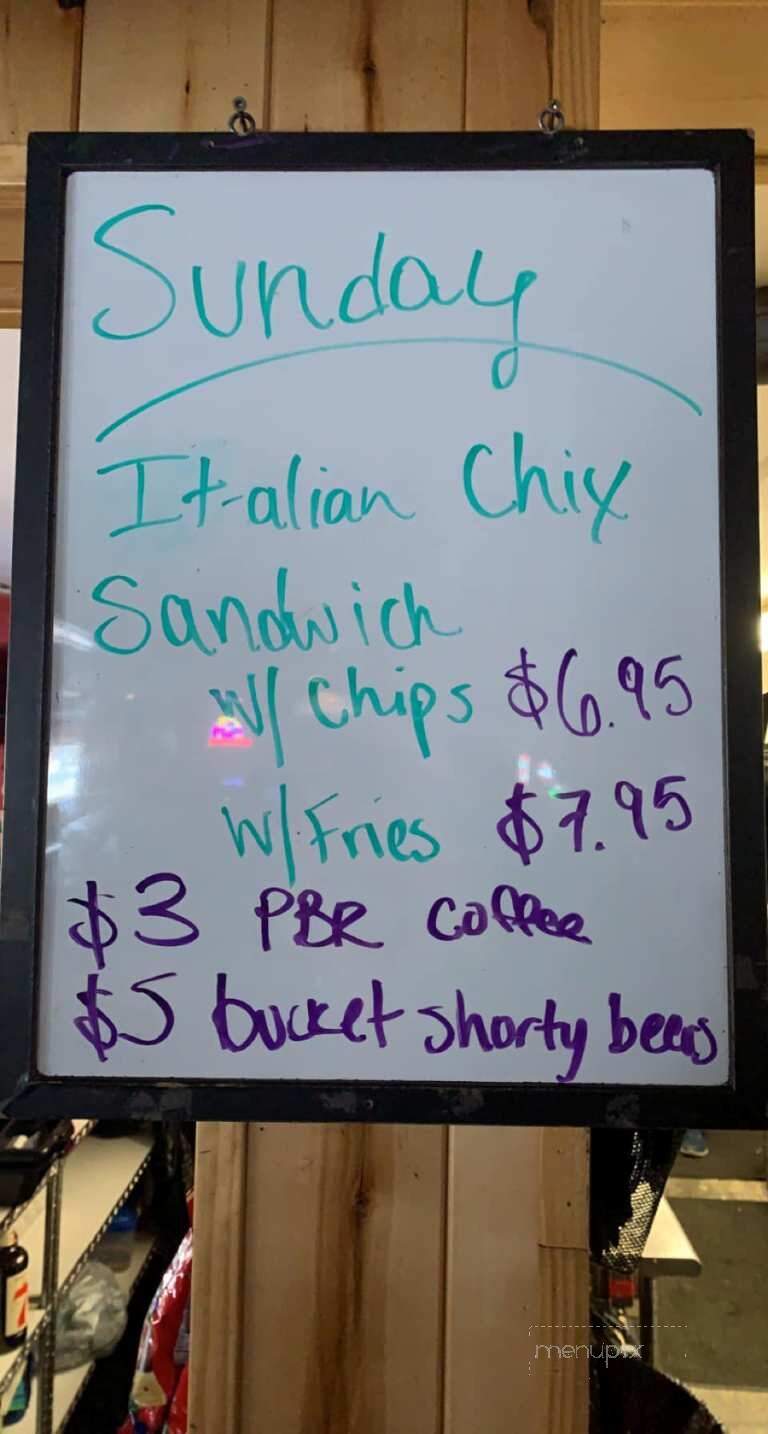 Sunday
Italian Chix
Sandwich
w/ Chips $6.95
w/Fries $7.95
$3 PBR coffee
$5 bucket shorty beers
menupix